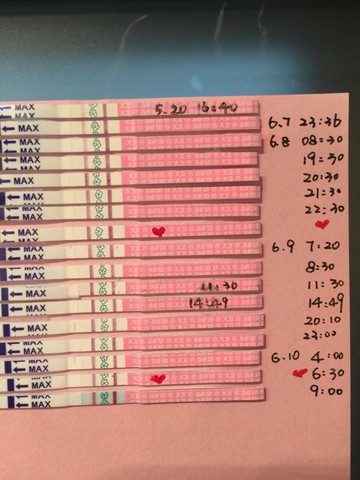 MAX 5.20 16:40
MAX 6.7 23:36
MAX 6.8 08:30
MAX 19:30
MAX 20:30
MAX 21:30
MAX 22:30
MAX
MAX 6.9 7:20
MAX 8:30
MAX 11:30 11:30
MAX 14:49 14:49
MAX 20:10
MAX 23:00
MAX 6.10 4:00
MAX 6:30
MAX 9:00